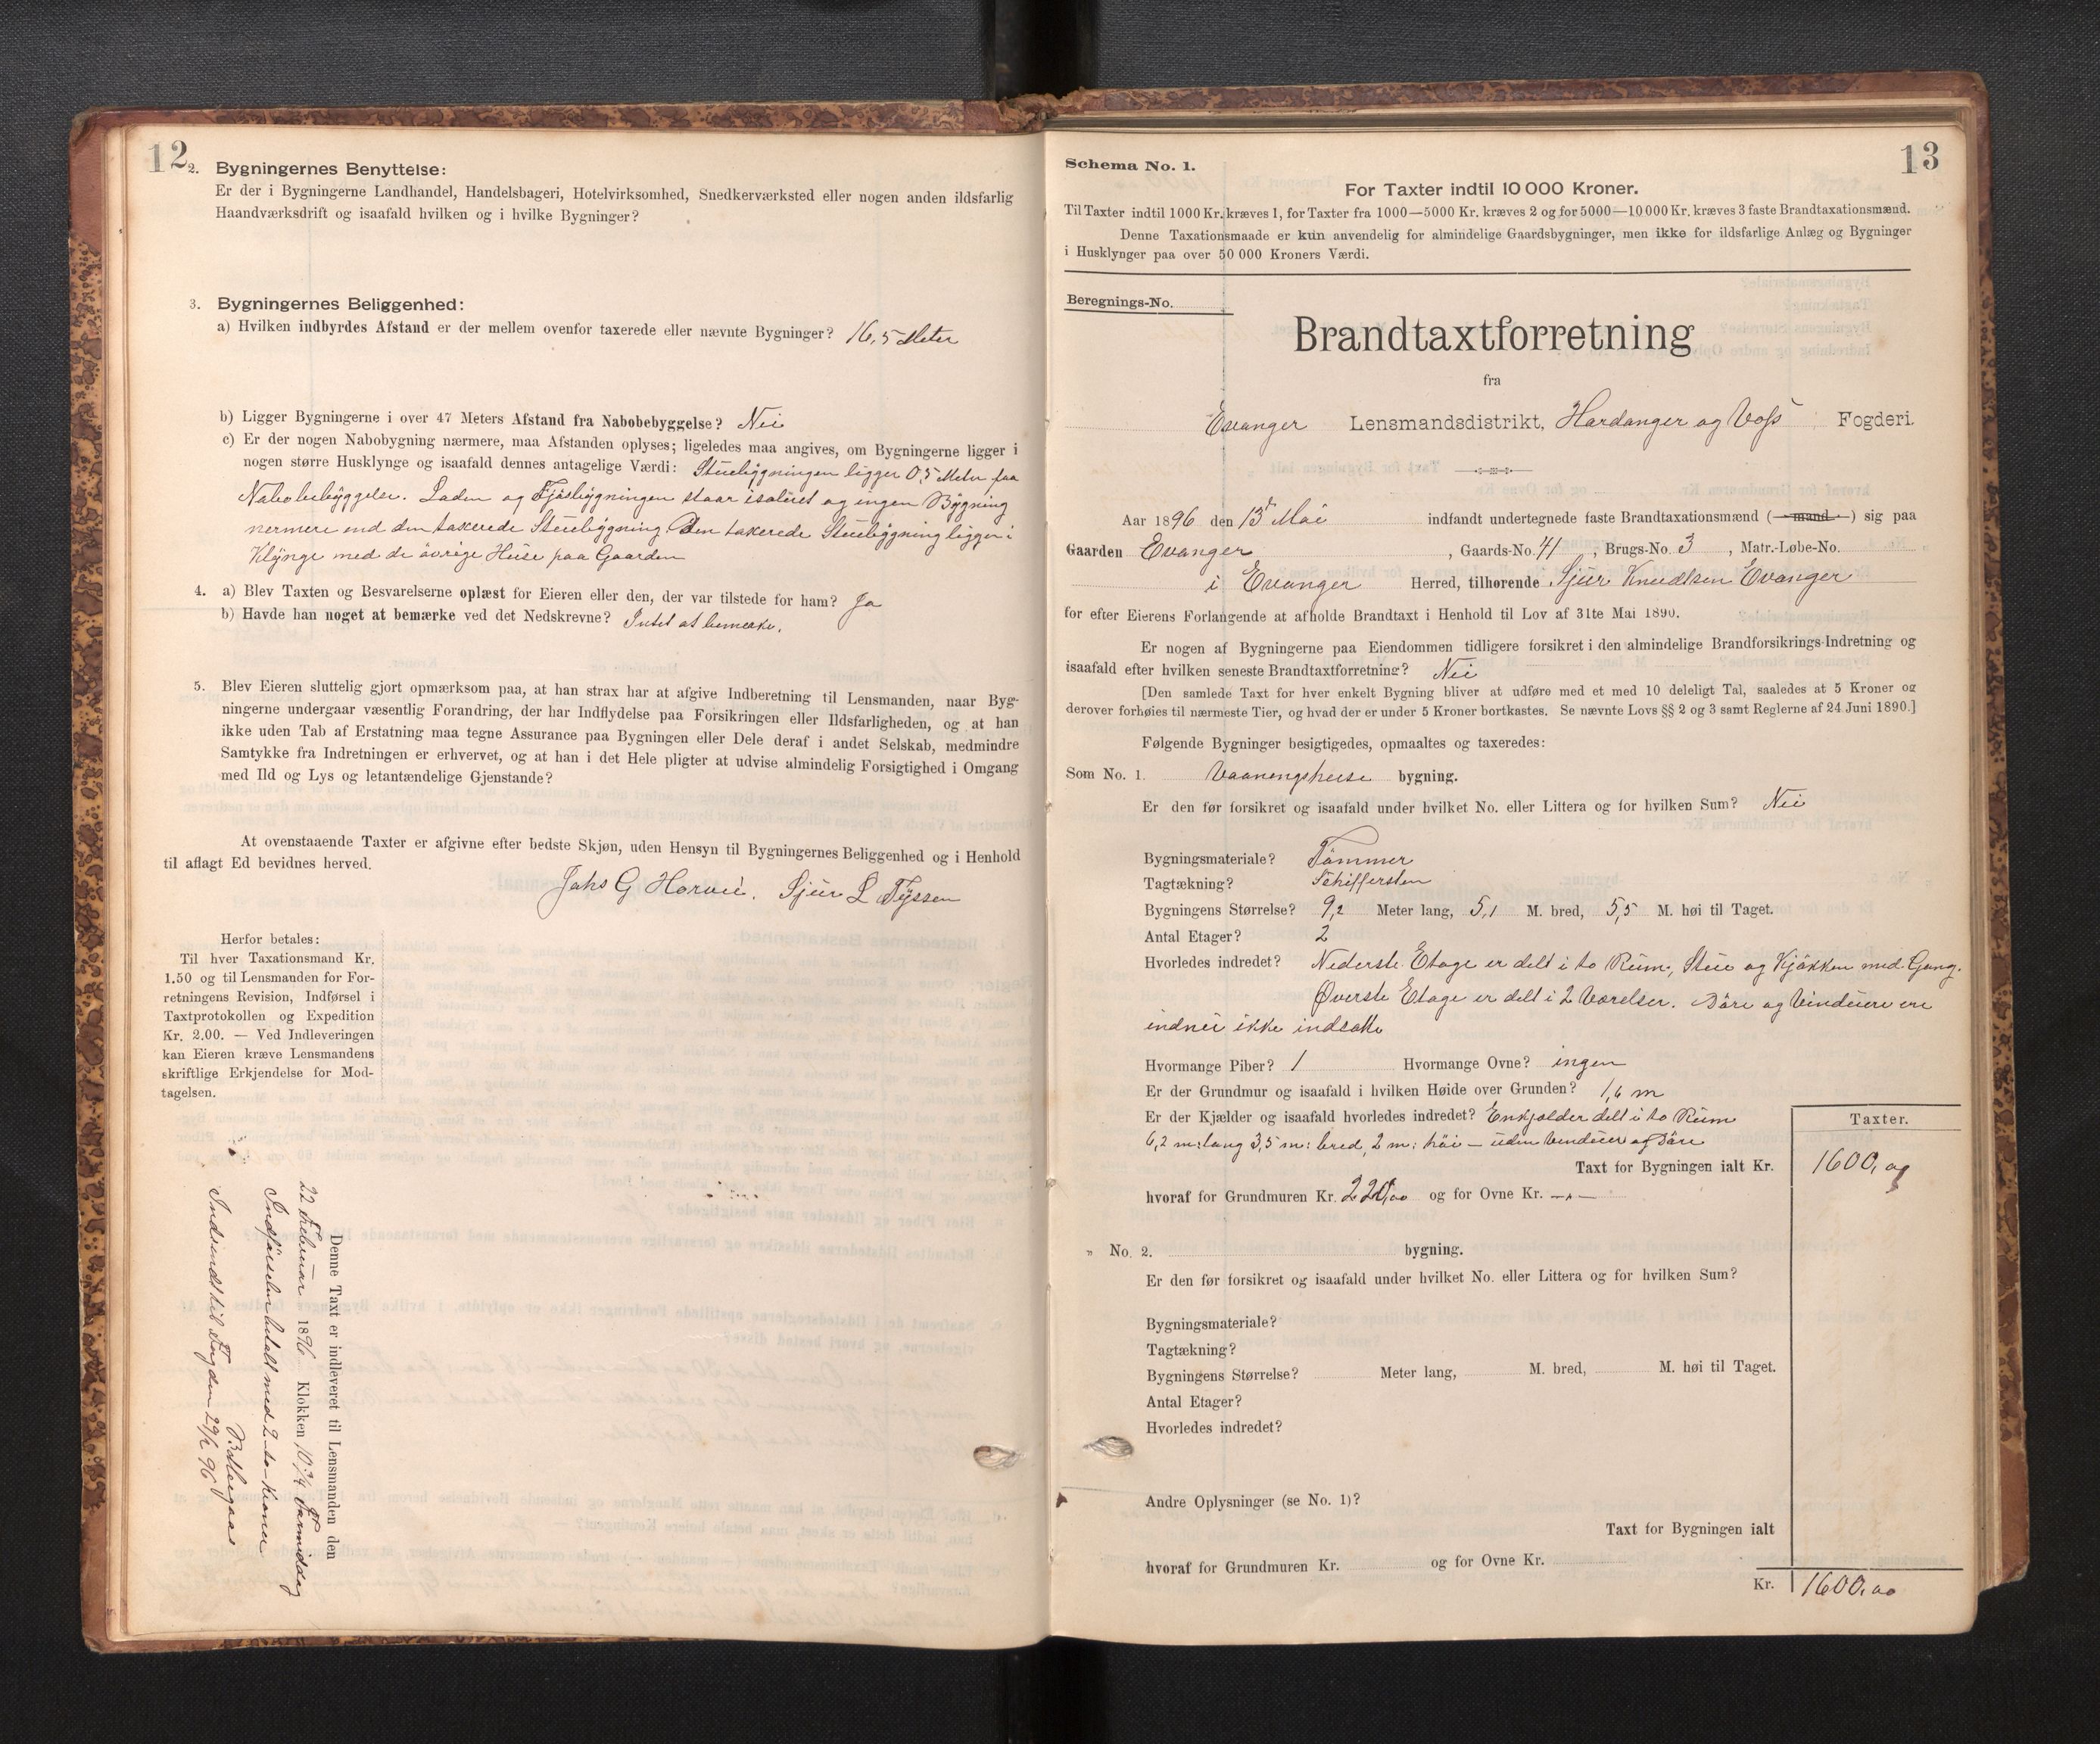 12
2. Bygningernes Benyttelse:
Er der i Bygningerne Landhandel, Handelsbageri, Hotelvirksomhed, Snedkerværksted eller nogen anden ildsfarlig
Haandværksdrift og isaafald hvilken og i hvilke Bygninger?
3. Bygningernes Beliggenhed:
a) Hvilken indbyrdes Afstand er der mellem ovenfor taxerede eller nævnte Bygninger? 16,5 Meter
b) Ligger Bygningerne i over 47 Meters Afstand fra Nabobebyggelse? Nei
c) Er der nogen Nabobygning nærmere, maa Afstanden oplyses; ligeledes maa angives, om Bygningerne ligger i
nogen større Husklynge og isaafald dennes antagelige Værdi: Stuebygningen ligger 0,5 Meter fra
Nabobebyggelse. Laden og Fjøsbygningen staar isoleret og ingen Bygning
nermere end den taxerede Stuebygning. Den taxerede Stuebygning ligger i
Klynge med de øvrige Huse paa Gaarden
4. a) Blev Taxten og Besvarelserne oplæst for Eieren eller den, der var tilstede for ham? Ja
b) Havde han noget at bemærke ved det Nedskrevne? Intet at bemerke.
5. Blev Eieren sluttelig gjort opmærksom paa, at han strax har at afgive Indberetning til Lensmanden, naar Byg-
ningerne undergaar væsentlig Forandring, der har Indflydelse paa Forsikringen eller Ildsfarligheden, og at han
ikke uden Tab af Erstatning maa tegne Assurance paa Bygningen eller Dele deraf i andet Selskab, medmindre
Samtykke fra Indretningen er erhvervet, og at han i det Hele pligter at udvise almindelig Forsigtighed i Omgang
med Ild og Lys og letantændelige Gjenstande?
At ovenstaaende Taxter er afgivne efter bedste Skjøn, uden Hensyn til Bygningernes Beliggenhed og i Henhold
til aflagt Ed bevidnes herved.
Johs G Horvei. Sjur L Fyssen
Herfor betales:
Til hver Taxationsmand Kr.
1.50 og til Lensmanden for For-
retningens Revision, Indførsel i
Taxtprotokollen og Expedition
Kr. 2.00. — Ved Indleveringen
kan Eieren kræve Lensmandens
skriftlige Erkjendelse for Mod-
tagelsen.
Denne Taxt er indleveret til Lensmanden den
22 Februar 1896 Klokken 10 3/4 Formiddag
Indførselen betalt med 2 - to - Kroner
Indsendt til Fogden 29/2 96
13
Schema No. 1.
For Taxter indtil 10 000 Kroner.
Til Taxter indtil 1000 Kr. kræves 1, for Taxter fra 1000—5000 Kr. kræves 2 og for 5000—10 000 Kr. kræves 3 faste Brandtaxationsmænd.
Denne Taxationsmaade er kun anvendelig for almindelige Gaardsbygninger, men ikke for ildsfarlige Anlæg og Bygninger
i Husklynger paa over 50 000 Kroners Værdi.
Beregnings-No.
Brandtaxtforretning
fra
Evanger Lensmandsdistrikt, Hardanger og Voss Fogderi.
Aar 1896 den 13de Mai indfandt undertegnede faste Brandtaxationsmænd (mand) sig paa
Gaarden Evanger, Gaards-No. 41, Brugs-No. 3, Matr.-Løbe-No.
i Evanger Herred, tilhørende Sjur Knudtsen Evanger
for efter Eierens Forlangende at afholde Brandtaxt i Henhold til Lov af 31te Mai 1890.
Er nogen af Bygningerne paa Eiendommen tidligere forsikret i den almindelige Brandforsikrings-Indretning og
isaafald efter hvilken seneste Brandtaxtforretning? Nei
[Den samlede Taxt for hver enkelt Bygning bliver at udføre med et med 10 deleligt Tal, saaledes at 5 Kroner og
derover forhøies til nærmeste Tier, og hvad der er under 5 Kroner bortkastes. Se nævnte Lovs §§ 2 og 3 samt Reglerne af 24 Juni 1890.]
Følgende Bygninger besigtigedes, opmaaltes og taxeredes:
Som No. 1. Vaaningshuse bygning.
Er den før forsikret og isaafald under hvilket No. eller Littera og for hvilken Sum? Nei
Bygningsmateriale? Tømmer
Tagtækning? Schiffersten
Bygningens Størrelse? 9,2 Meter lang, 5,1 M. bred, 5,5 M. høi til Taget.
Antal Etager? 2
Hvorledes indredet? Nederste Etage er delt i to Rum, Stue og Kjøkken med Gang.
Øverste Etage er delt i 2 Værelser. Døre og Vinduer ere
indnu ikke indsatte
Hvormange Piber? 1 Hvormange Ovne? ingen
Er der Grundmur og isaafald i hvilken Høide over Grunden? 1,6 m
Er der Kjælder og isaafald hvorledes indredet? En kjelder delt i to Rum
6,2 m: lang 3,5 m: bred, 2 m: høi — uden Vinduer og Døre
Taxter.
Taxt for Bygningen ialt Kr. 1600,00
hvoraf for Grundmuren Kr. 220,00 og for Ovne Kr. —"—
" No. 2. bygning.
Er den før forsikret og isaafald under hvilket No. eller Littera og for hvilken Sum?
Bygningsmateriale?
Tagtækning?
Bygningens Størrelse? Meter lang, M. bred, M. høi til Taget.
Antal Etager?
Hvorledes indredet?
Andre Oplysninger (se No. 1)?
Taxt for Bygningen ialt
hvoraf for Grundmuren Kr. og for Ovne Kr.
Kr. 1600,00